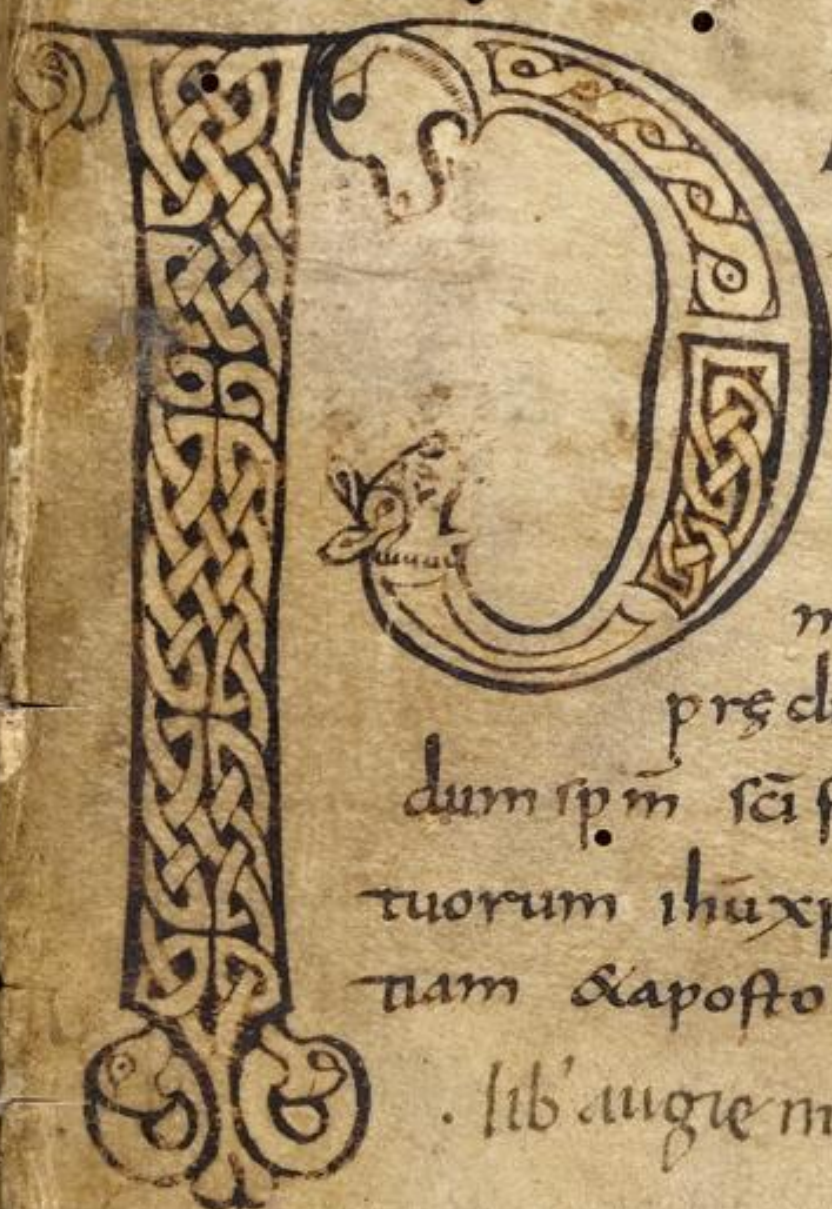 P
m
pręd
dum spm̄ sc̄i s
tuorum ihūxp
tiam &aposto
. lib' augię m